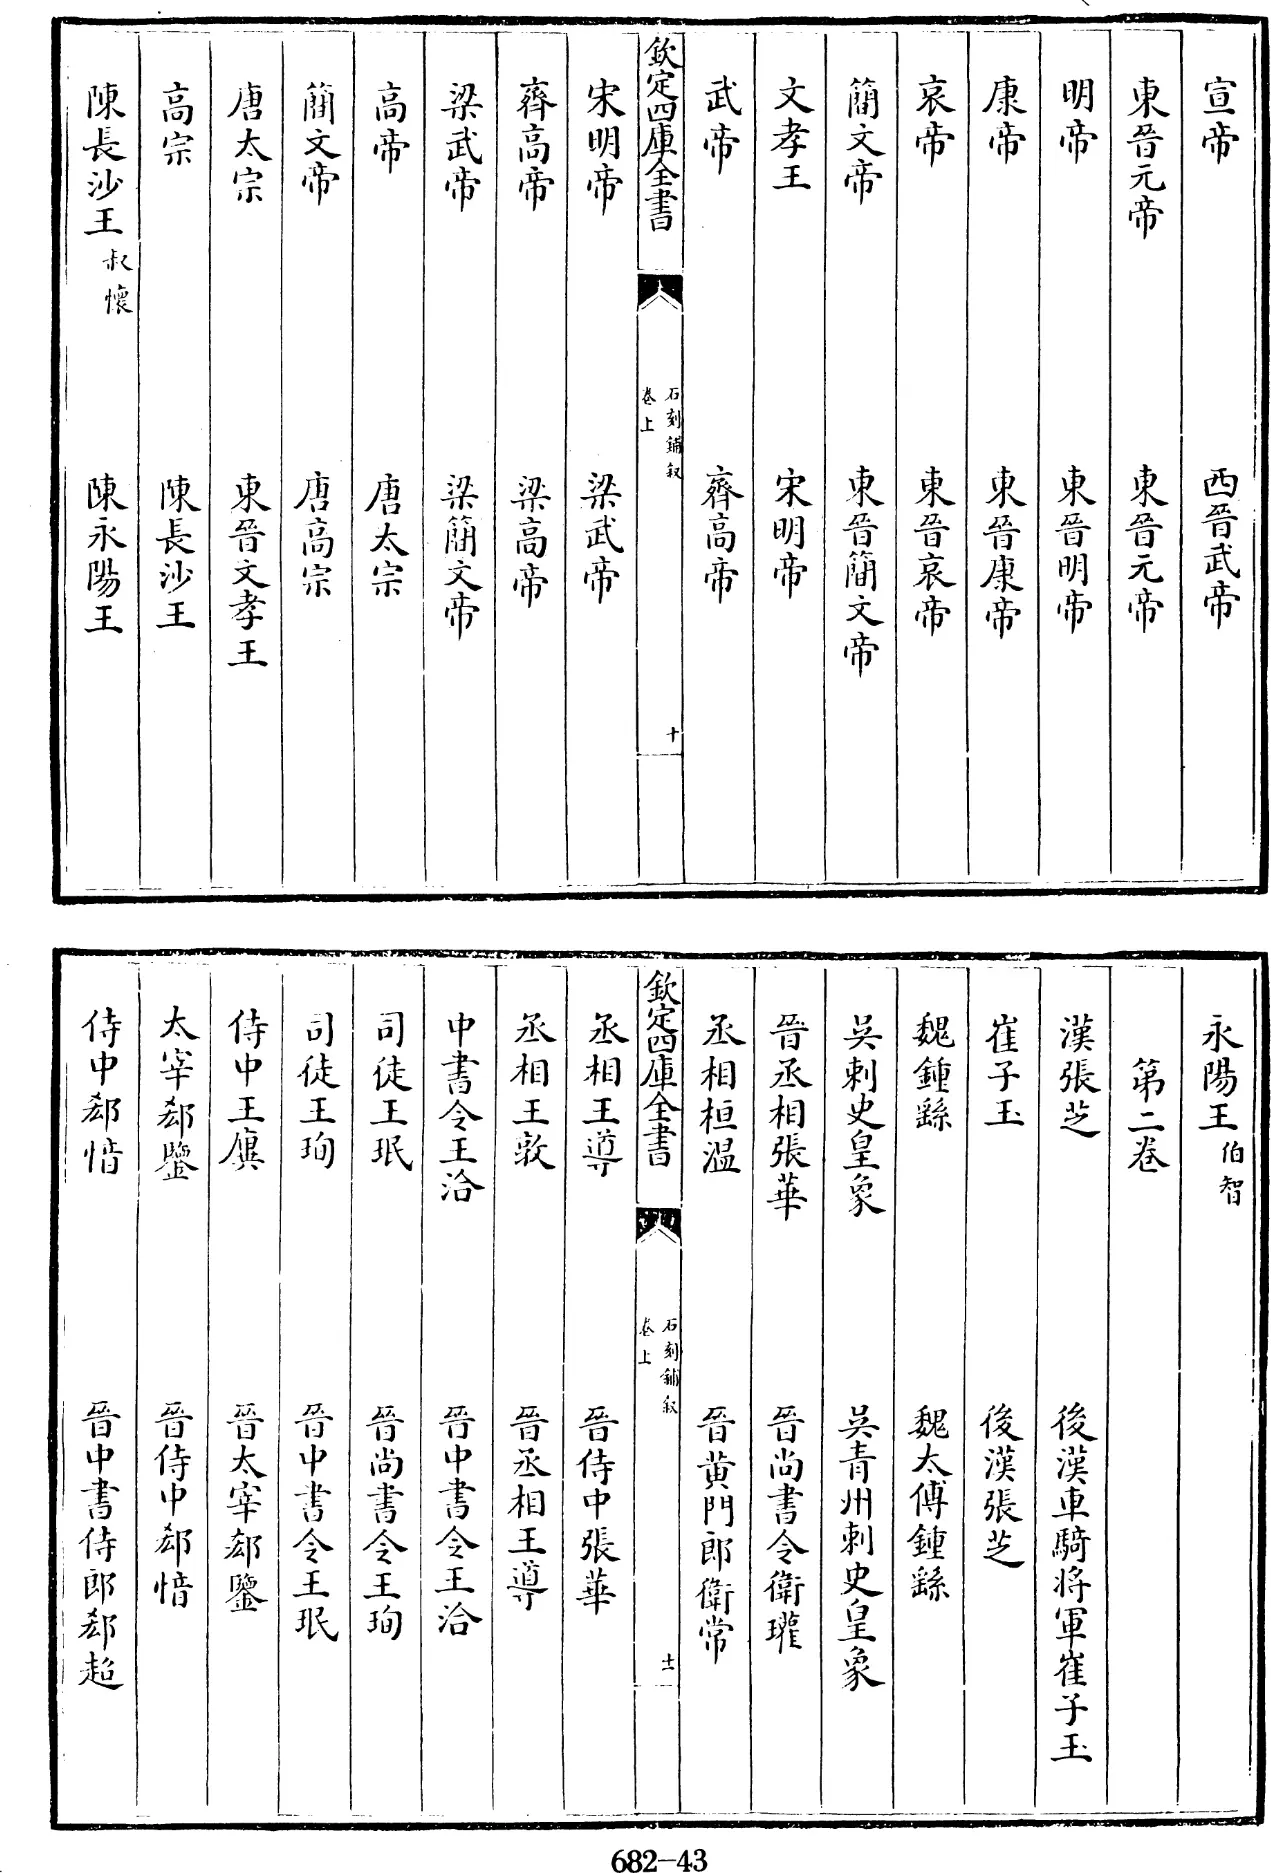 宣帝　西晉武帝
東晉元帝　東晉元帝
明帝　東晉明帝
康帝　東晉康帝
哀帝　東晉哀帝
簡文帝　東晉簡文帝
文孝王　宋明帝
武帝　齊高帝
欽定四庫全書　石刻鋪叙　卷上　十
宋明帝　梁武帝
齊高帝　梁高帝
梁武帝　梁簡文帝
高帝　唐太宗
簡文帝　唐高宗
唐太宗　東晉文孝王
高宗　陳長沙王
陳長沙王叔懷　陳永陽王
永陽王伯智
第二卷
漢張芝　後漢車騎將軍崔子玉
崔子玉　後漢張芝
魏鍾繇　魏太傅鍾繇
吳刺史皇象　吳青州刺史皇象
晉丞相張華　晉尚書令衛瓘
丞相桓溫　晉黃門郎衛常
欽定四庫全書　石刻鋪叙　卷上　十一
丞相王導　晉侍中張華
丞相王敦　晉丞相王導
中書令王洽　晉中書令王洽
司徒王珉　晉尚書令王珣
司徒王珣　晉中書令王珉
侍中王廙　晉太宰郄鑒
太宰郄鑒　晉侍中郄愔
侍中郄愔　晉中書侍郎郄超
682-43